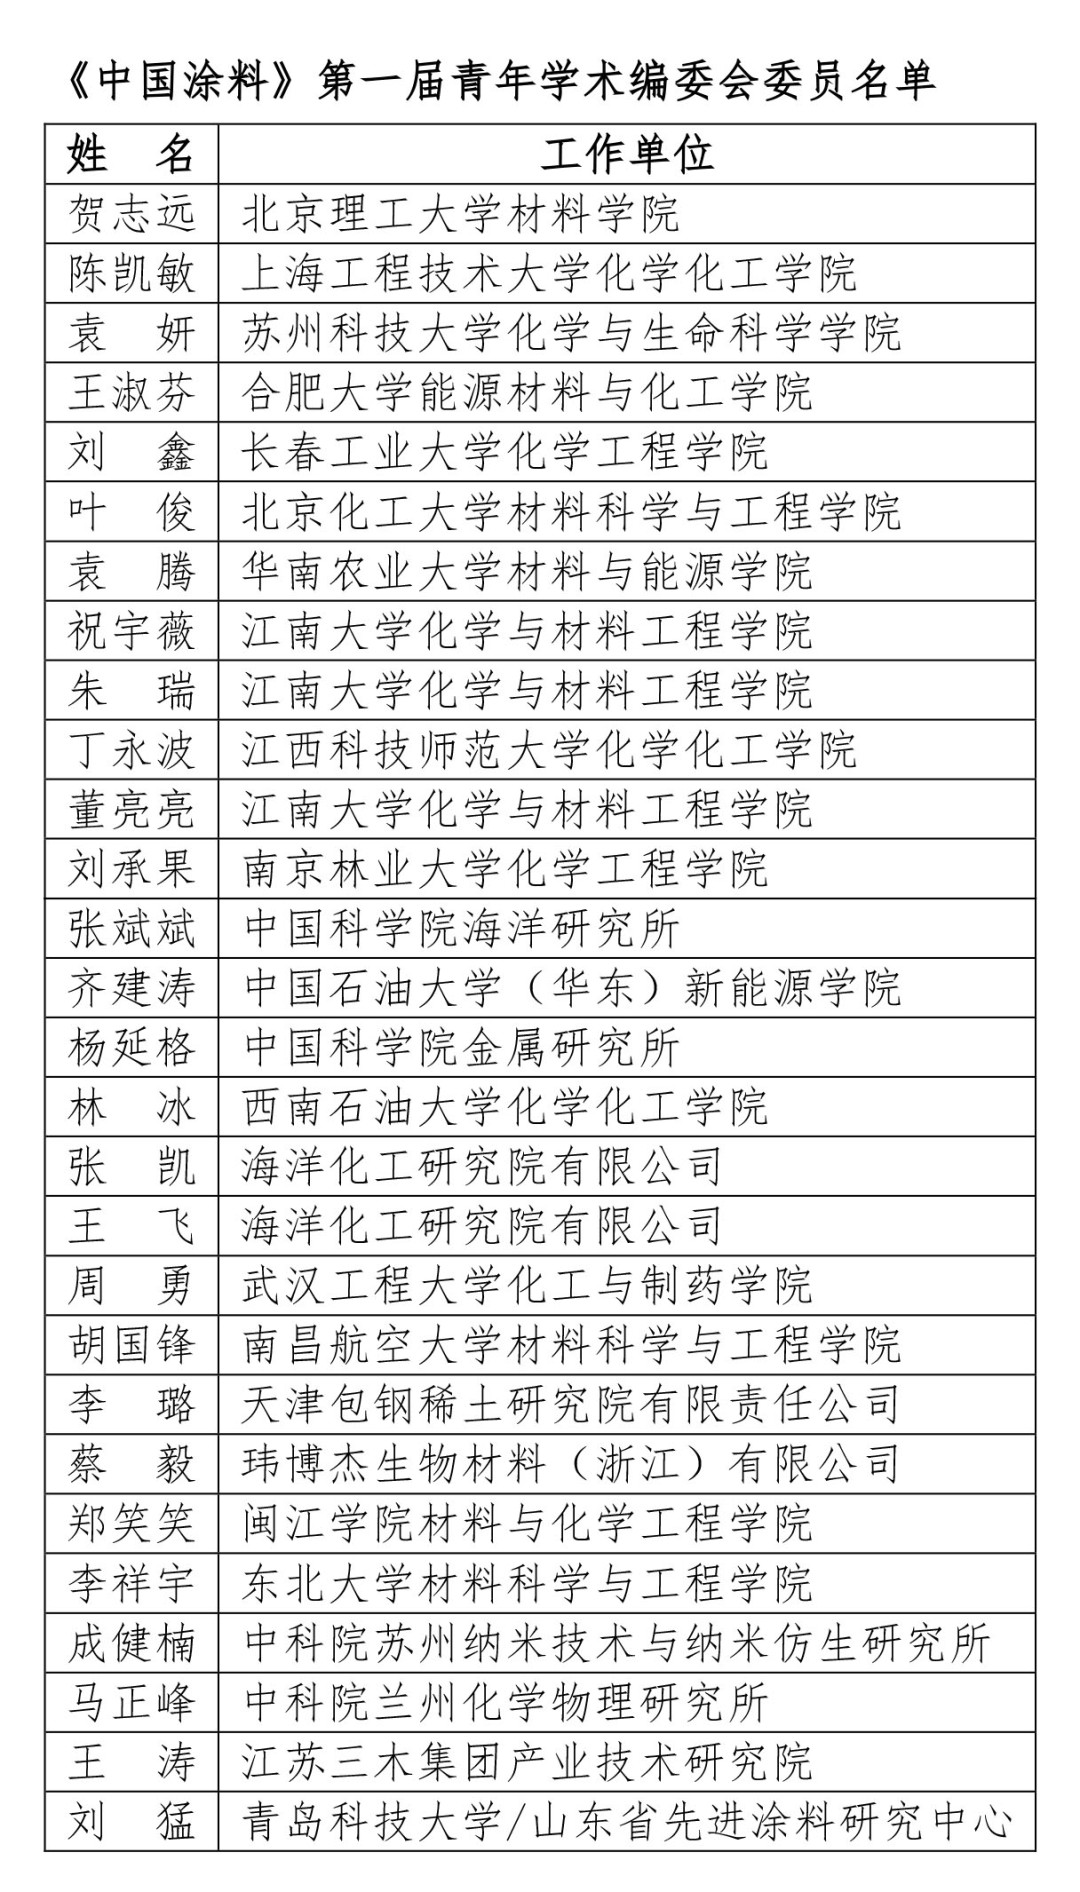 《中国涂料》第一届青年学术编委会委员名单
姓 名 工作单位
贺志远 北京理工大学材料学院
陈凯敏 上海工程技术大学化学化工学院
袁 妍 苏州科技大学化学与生命科学学院
王淑芬 合肥大学能源材料与化工学院
刘 鑫 长春工业大学化学工程学院
叶 俊 北京化工大学材料科学与工程学院
袁 腾 华南农业大学材料与能源学院
祝宇薇 江南大学化学与材料工程学院
朱 瑞 江南大学化学与材料工程学院
丁永波 江西科技师范大学化学化工学院
董亮亮 江南大学化学与材料工程学院
刘承果 南京林业大学化学工程学院
张斌斌 中国科学院海洋研究所
齐建涛 中国石油大学（华东）新能源学院
杨延格 中国科学院金属研究所
林 冰 西南石油大学化学化工学院
张 凯 海洋化工研究院有限公司
王 飞 海洋化工研究院有限公司
周 勇 武汉工程大学化工与制药学院
胡国锋 南昌航空大学材料科学与工程学院
李 璐 天津包钢稀土研究院有限责任公司
蔡 毅 玮博杰生物材料（浙江）有限公司
郑笑笑 闽江学院材料与化学工程学院
李祥宇 东北大学材料科学与工程学院
成健楠 中科院苏州纳米技术与纳米仿生研究所
马正峰 中科院兰州化学物理研究所
王 涛 江苏三木集团产业技术研究院
刘 猛 青岛科技大学/山东省先进涂料研究中心